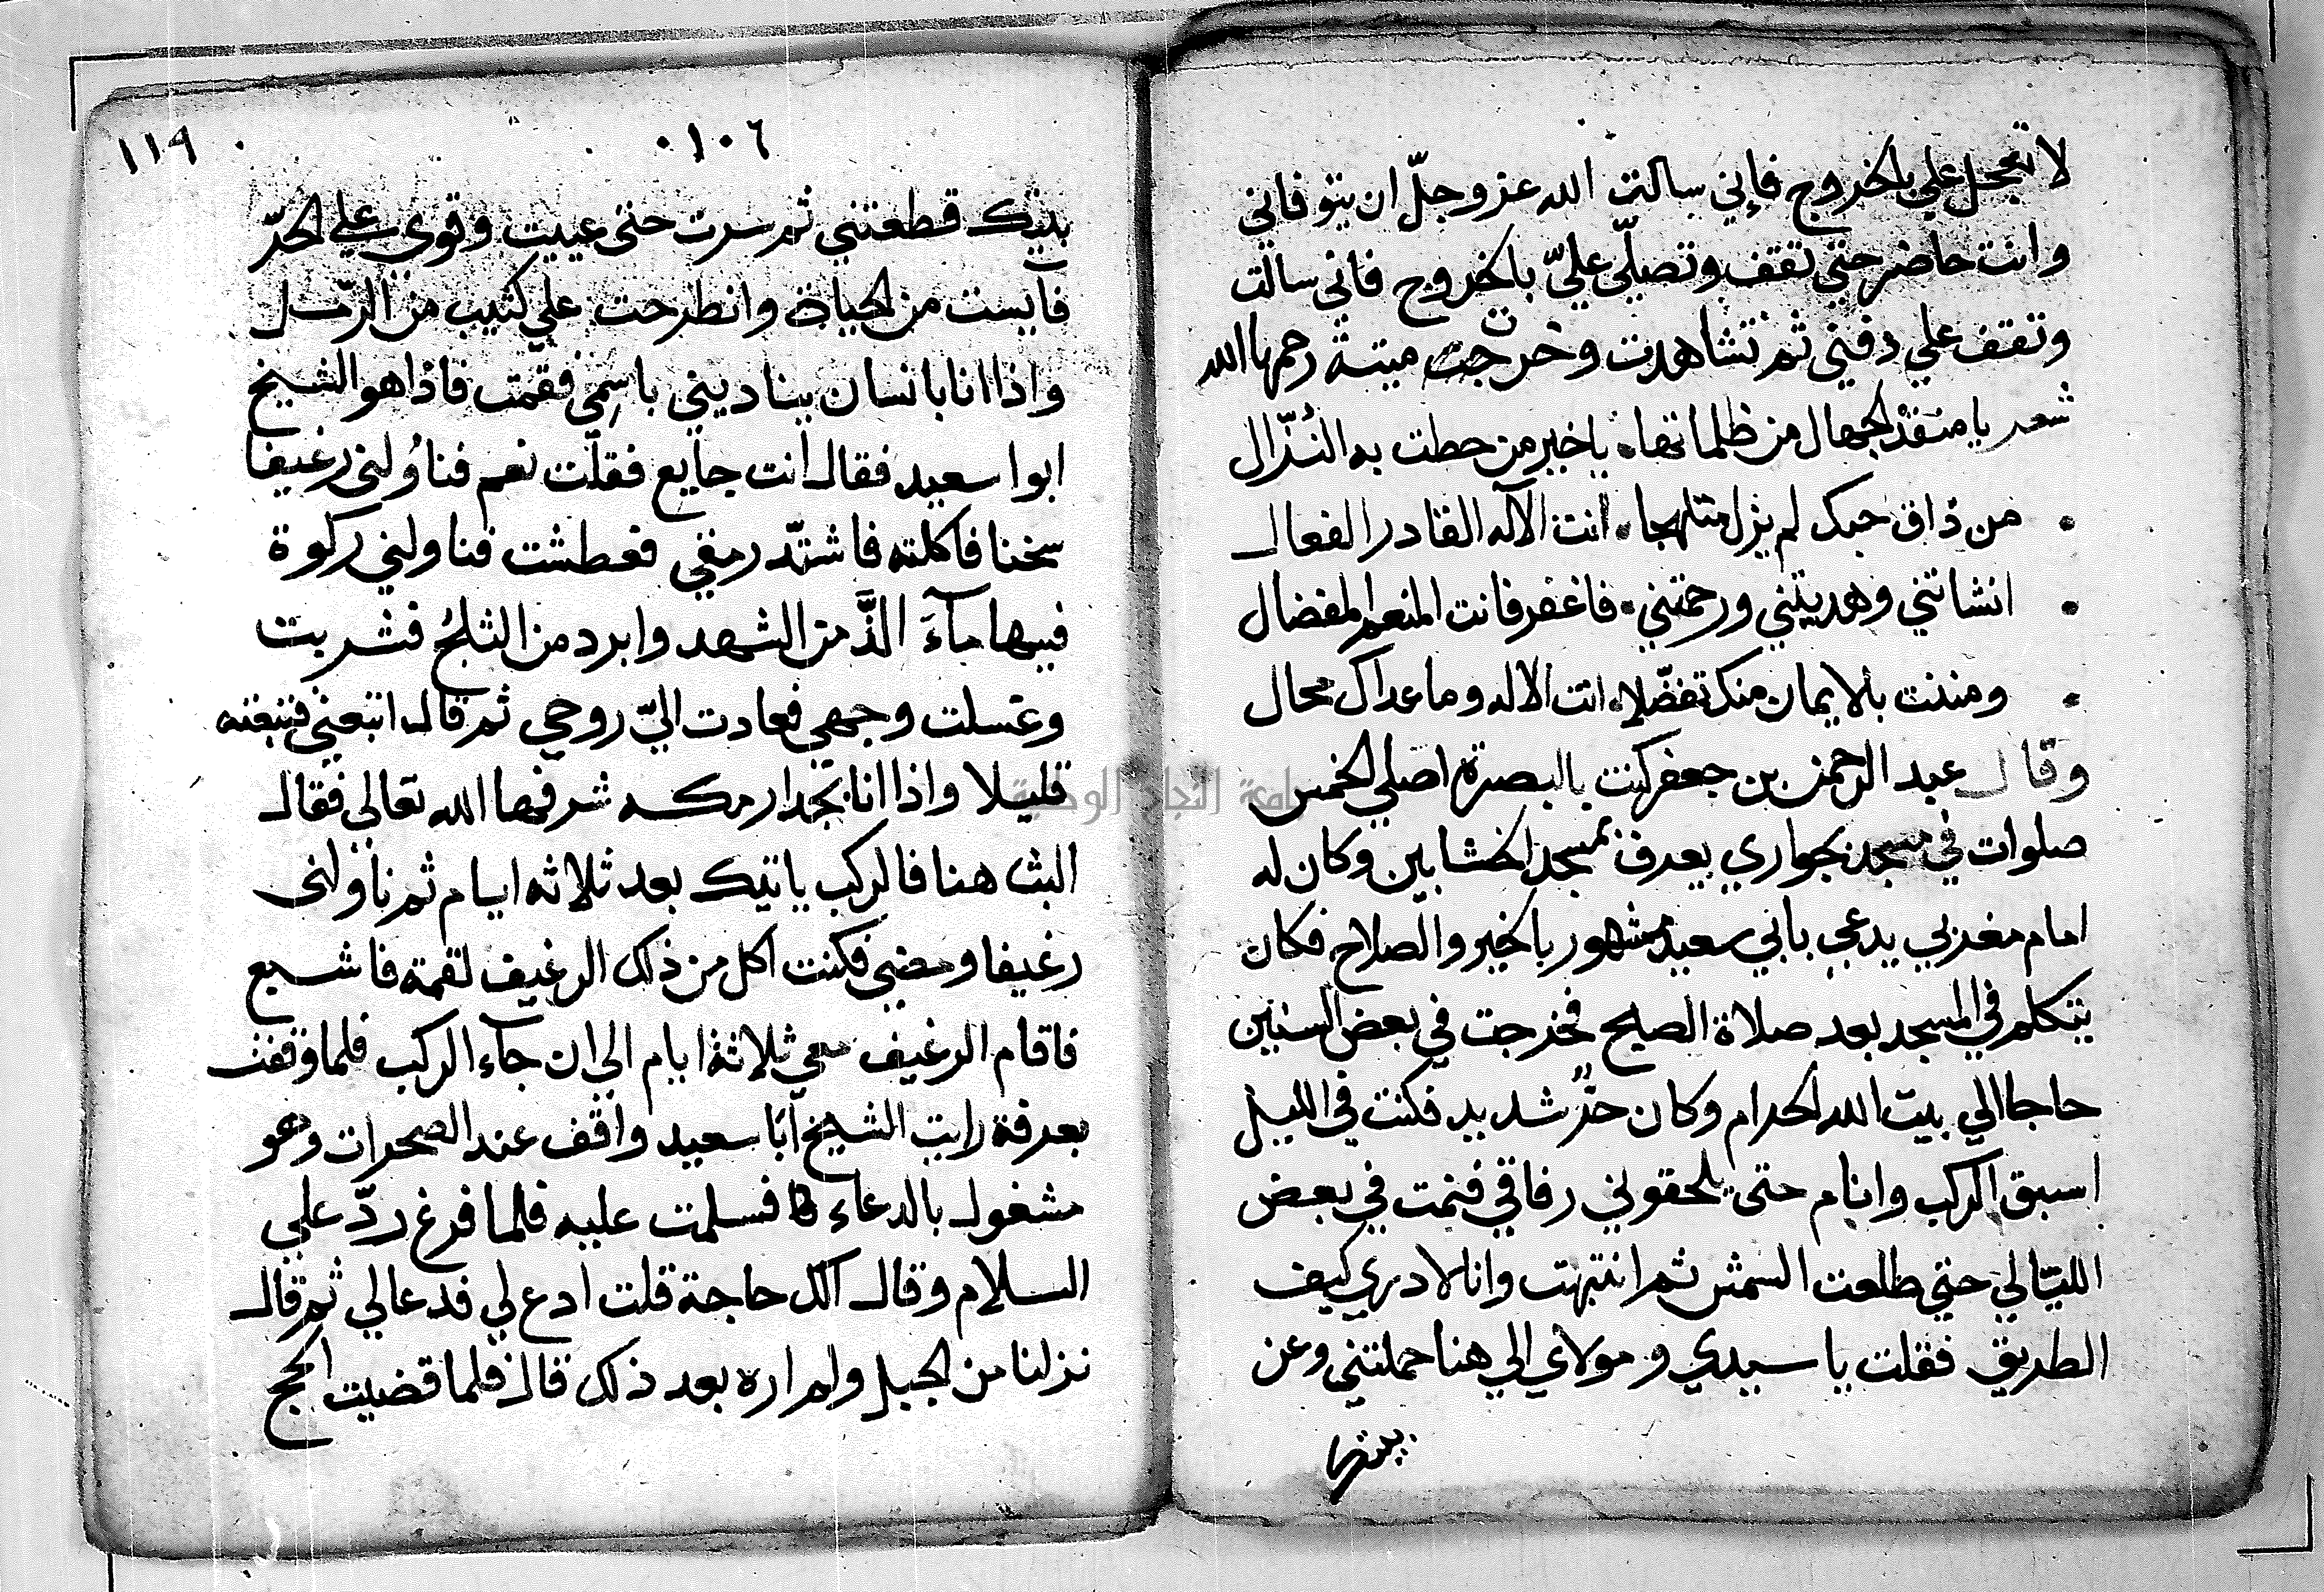 لا تعجل علي بالخروج فإني سالت الله عز وجلّ ان يتوفاني
وانت حاضر حتي تقف وتصلّي عليّ باخروج فاني سالت
وتقف علي دفني ثم تشاهدت وخرجت ميتة رحمها الله
شعر يا منقذ الجهال من ظلماتها . يا خير من حطت به النُزّال
. من ذاق حبك لم يزل متلهجا . انت الآله القادر الفعال
. انشاتني وهديتني ورحمتني . فاغفر فانت المنعم المفضال
. ومننت بالايمان منك تفضّلا . انت الاله وما عداك محال
وقال عبد الرحمن بن جعفر كنت بالبصرة اصلي الخمس
صلوات في مسجد بجواري يعرف بمسجد الخشابين وكان له
امام مغربي يدعي بابي سعيد مشهور بالخير والصلاح فكان
يتكلم في المسجد بعد صلاة الصبح فخرجت في بعض السنين
حاجا الي بيت الله الحرام وكان حرٌ شديد فكنت في الليل
اسبق الركب وانام حتى يلحقوني رفاقي فنمت في بعض
الليّالي حتي طلعت الشمس ثم انتبهت وانا لا دري كيف
الطريق فقلت يا سيدي ومولاي الي هنا حملتني وعن
بيتك
١٠٦
١١٩
بيتك قطعتني ثم سرت حتى عييت وقوي علي الحرّ
فآيست من الحياة وانطرحت علي كثيب من الرّمل
واذا انا بانسان يناديني باسمي فقمت فاذا هو الشيخ
ابوا سعيد فقال انت جايع فقلت نعم فناولني رغيفا
سخنا فاكلته فاشتدّ رمقي فعطشت فناولني ركوة
فيها مآءً الذّ من الشهد وابرد من الثلج فشربت
وغسلت وجهي فعادت اليّ روحي ثم قال اتبعني فتبعته
قليلا واذا انا بجدار مكه شرفها الله تعالي فقال
البث هنا فالركب ياتيك بعد ثلاثه ايام ثم ناولني
رغيفا ومضي فكنت اكل من ذلك الرغيف لقمة فاشبع
فاقام الرغيف معي ثلاثة ايام الي ان جآء الركب فلما وقفت
بعرفة رايت الشيخ ابا سعيد واقف عند الصخرات وهو
مشغول بالدعاء فسلمت عليه فلما فرغ ردّ علي
السلام وقال الك حاجة قلت ادع لي فدعا لي ثم قال
نزلنا من الجبل ولم اره بعد ذلك قال فلما قضيت الحج